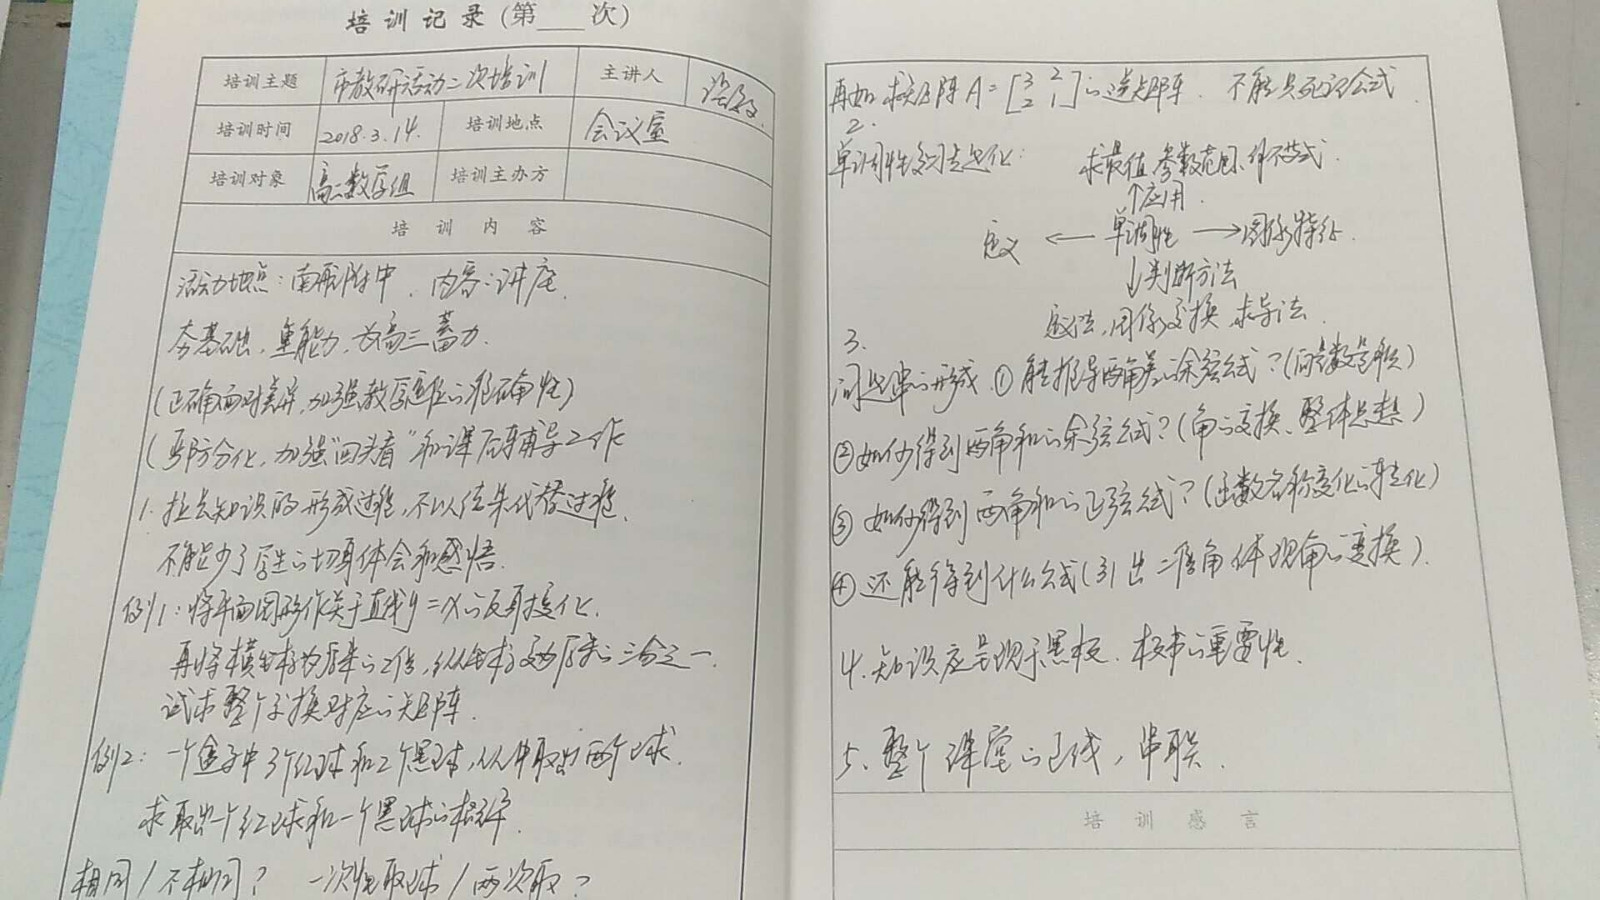 培训记录(第___次)
培训主题 市教研活动二次培训 主讲人
培训时间 2018.3.14. 培训地点 会议室
培训对象 高二数学组 培训主办方
培训内容
活动地点:南航附中. 内容:讲座.
夯基础,重能力,为高三蓄力.
(正确面对差异,加强教学定位的准确性)
(预防分化,加强"回头看"和课后辅导工作
1. 拉长知识的形成过程,不以结果代替过程.
不能少了学生的切身体会和感悟.
例1:将平面图形作关于直线y=x的反射变化.
再将横坐标为原来的2倍,纵坐标变为原来的三分之一.
试求整个变换对应的矩阵.
例2:一个盒子中3个红球和2个黑球,从中取出两个球.
求取出一个红球和一个黑球的概率.
相同/不相同? 一次性取球/两次取?
再如 求矩阵A=[3 2
2 1]的逆矩阵. 不能只死记公式.
2.
单调性问题变化: 求最值,参数范围,解不等式.
↑应用.
定义 ← 单调性 → 图像特征.
↓判断方法
定义法,图像变换,求导法.
3.
问题串的形成.①能推导两角差的余弦公式?(向量数量积)
②如何得到两角和的余弦公式?(角的变换、整体思想)
③如何得到两角和的正弦公式?(函数名称变化的转化)
④还能得到什么公式(引出二倍角体现角的变换).
4.知识应呈现于黑板.板书的重要性.
5.整个课堂的主线,串联.
培训感言